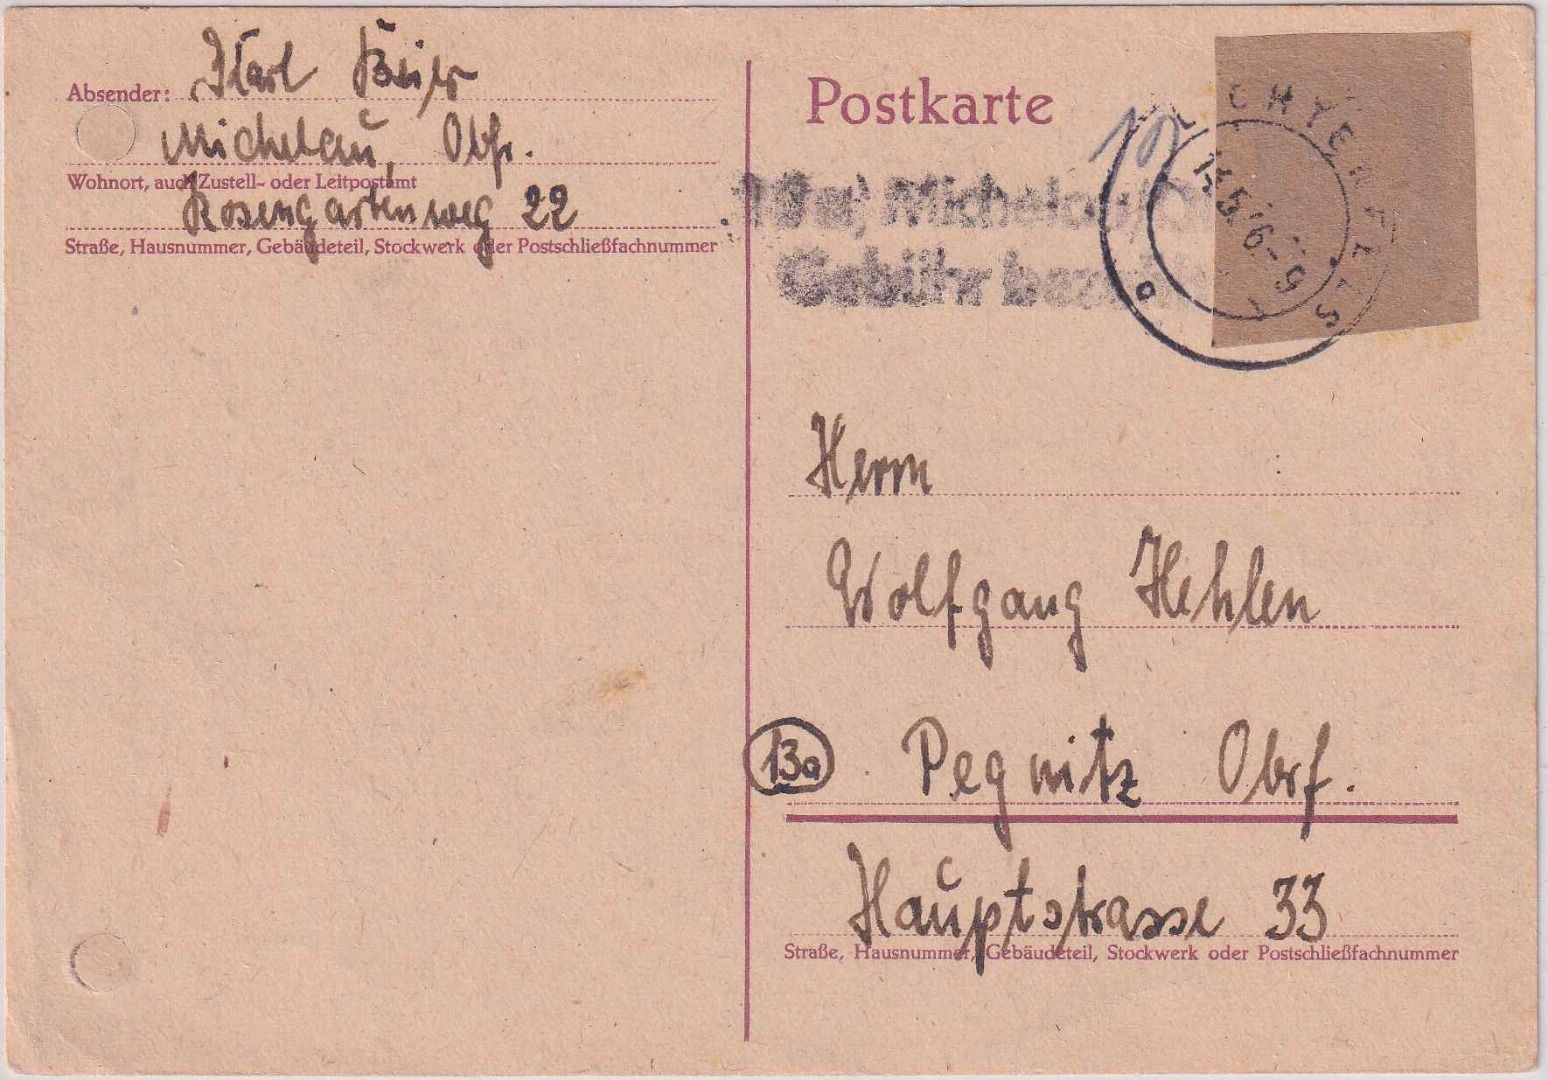 Absender: Karl Beier
Michelau, Obfr.
Wohnort, auch Zustell- oder Leitpostamt
Rosengartenweg 22
Straße, Hausnummer, Gebäudeteil, Stockwerk oder Postschließfachnummer
Postkarte
Michelau/O
Gebühr bezahlt
LICHTENFELS
Herrn
Wolfgang Hehlen
13a Pegnitz Obrf.
Hauptstrasse 33
Straße, Hausnummer, Gebäudeteil, Stockwerk oder Postschließfachnummer